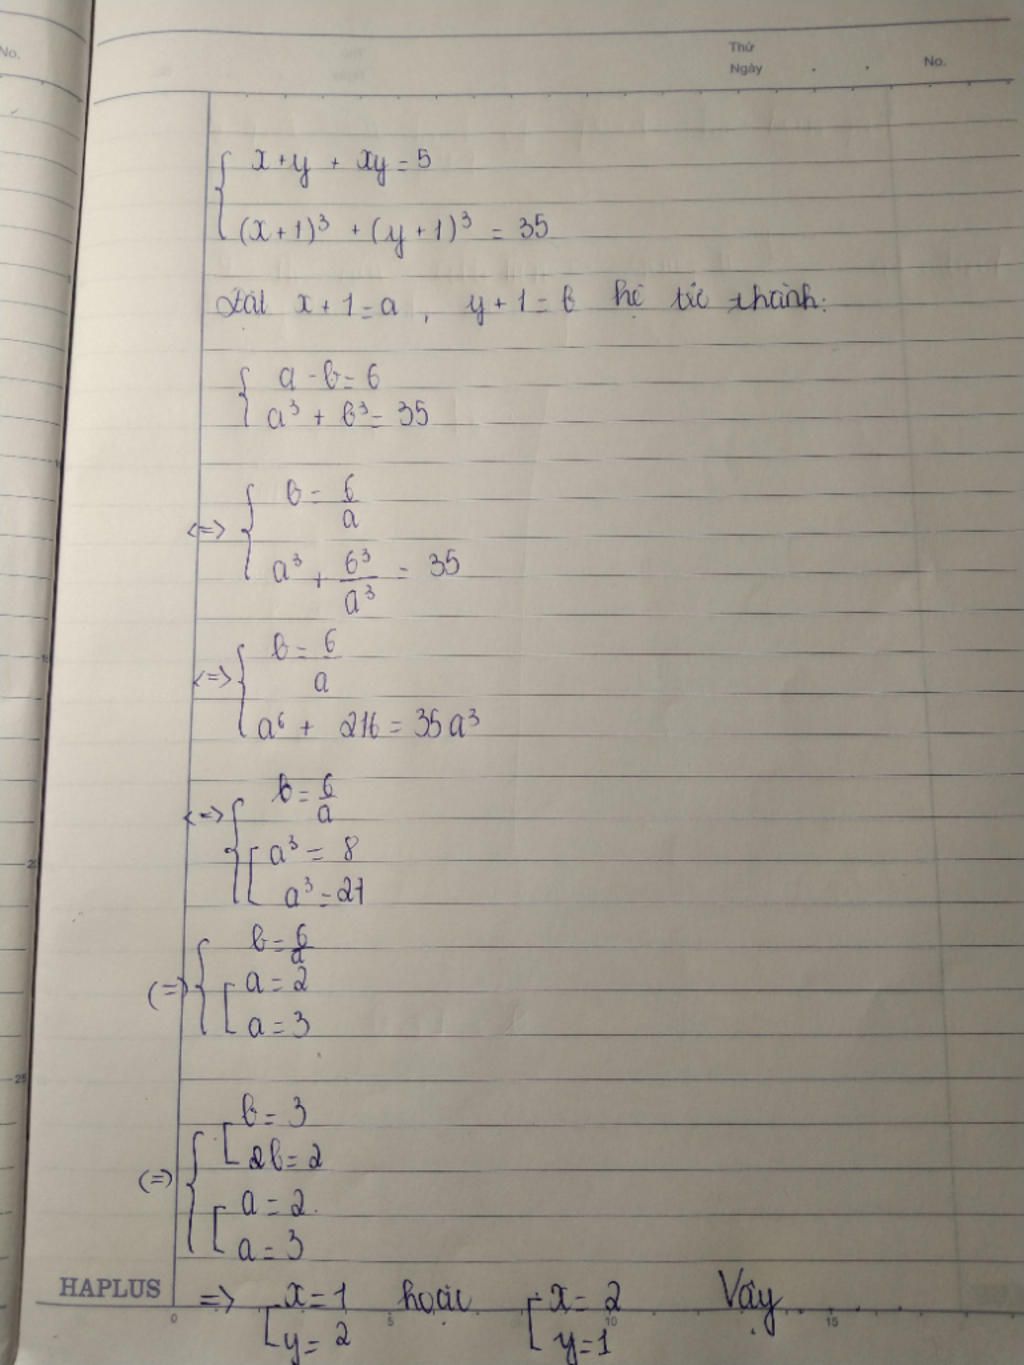 No.
Thứ
Ngày . . No.
x+y + xy = 5
(x+1)³ + (y+1)³ = 35
Đặt x+1=a, y+1=b hệ tức thành:
a-b=6
a³ + b³= 35
b= 6/a
<=>
a³ + 6³/a³ = 35
b= 6/a
<=>
a⁶ + 216 = 35a³
b=6/a
<=>
a³ = 8
a³ = 27
b=6/a
(=) a=2
a=3
b= 3
2b=2
(=)
a=2.
a=3
HAPLUS
=> x=1 hoặc x=2 Vậy
y=2 y=1
0 5 10 15
25